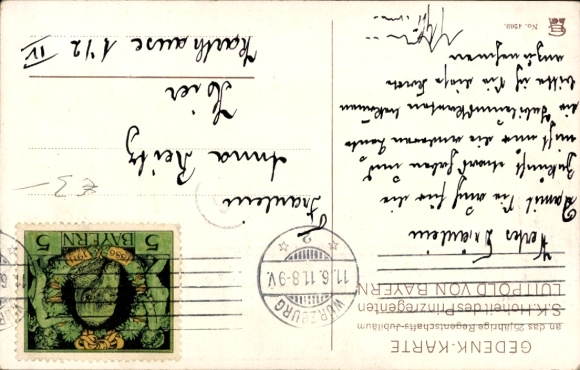 GEDENK-KARTE
an das 25jährige Regentschafts-Jubiläum
S.K. Hoheit des Prinzregenten
LUITPOLD VON BAYERN
Wertes Fräulein
Damit Sie auch für die
Zukunft etwas haben und
nicht nur die anderen Leute
die Jubiläumskarten bekommen
bitte ich Sie diese Karte
anzunehmen
No. 4269.
WÜRZBURG
11.6.11.8-9V.
2
5 BAYERN 5
1886 1911
Fräulein
Anna Reitz
Hier
Karthause 112 IV
£3-